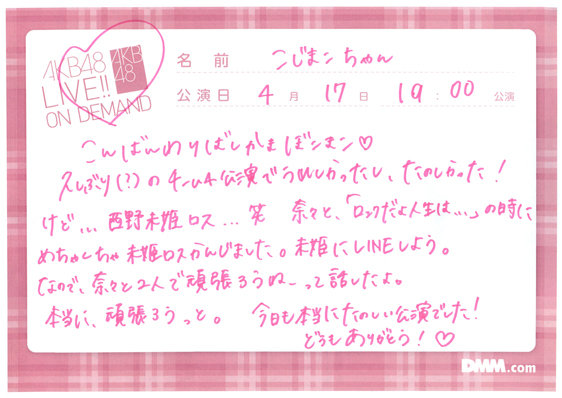 AKB48
LIVE!!
ON DEMAND
AKB
48
名前 こじまこちゃん
公演日 4月 17日 19:00 公演
こんばんめりばしかまぼこまこ♡
久しぶり(?)のチーム4公演でうれしかったし、たのしかった!
けど… 西野未姫ロス…笑 奈々と、「ロックだよ人生は…」の時に
めちゃくちゃ未姫ロスかんじました。未姫にLINEしよう。
なので、奈々と2人で頑張ろうねーって話したよ。
本当に、頑張ろうっと。 今日も本当にたのしい公演でした!
どうもありがとう!♡
DMM.com